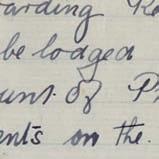 arding Re
be lodged
unt of P
ents on the.